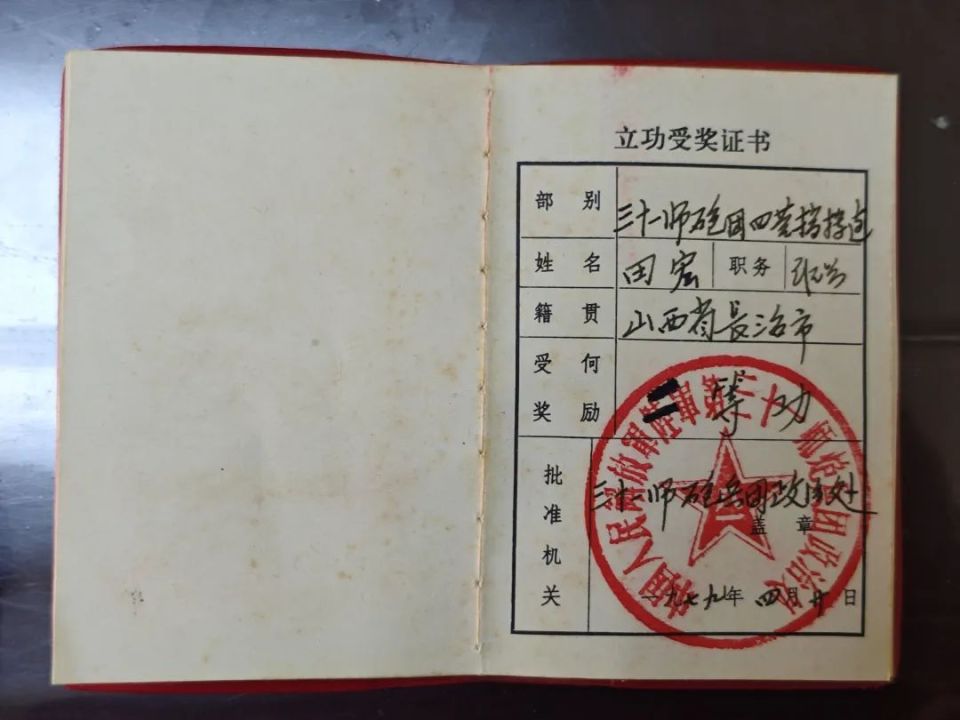 立功受奖证书
部别 三十一师砲团四营指挥连
姓名 田宏 职务 班长
籍贯 山西省長治市
受何奖励 二等功
批准机关 三十一师砲兵团政治处
盖章
一九七九年 四月廿日
中国人民解放军陆军第三十一师炮兵团政治处